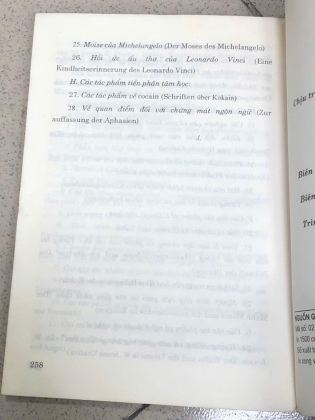 25. Moise của Michelangelo (Der Moses des Michelangelo)
26. Hồi ức ấu thơ của Leonardo Vinci (Eine
Kindheitserinnerung des Leonardo Vinci)
H. Các tác phẩm tiền phân tâm học:
27. Các tác phẩm về cocain (Schriften über Kokain)
28. Về quan điểm đối với chứng mất ngôn ngữ (Zur
auffassung der Aphasien)
258
Chịu tr
Biên
Biên
Trìn
NGUỒN G
Mã số: 02
In 1500 c
Số xuất b
In xong v